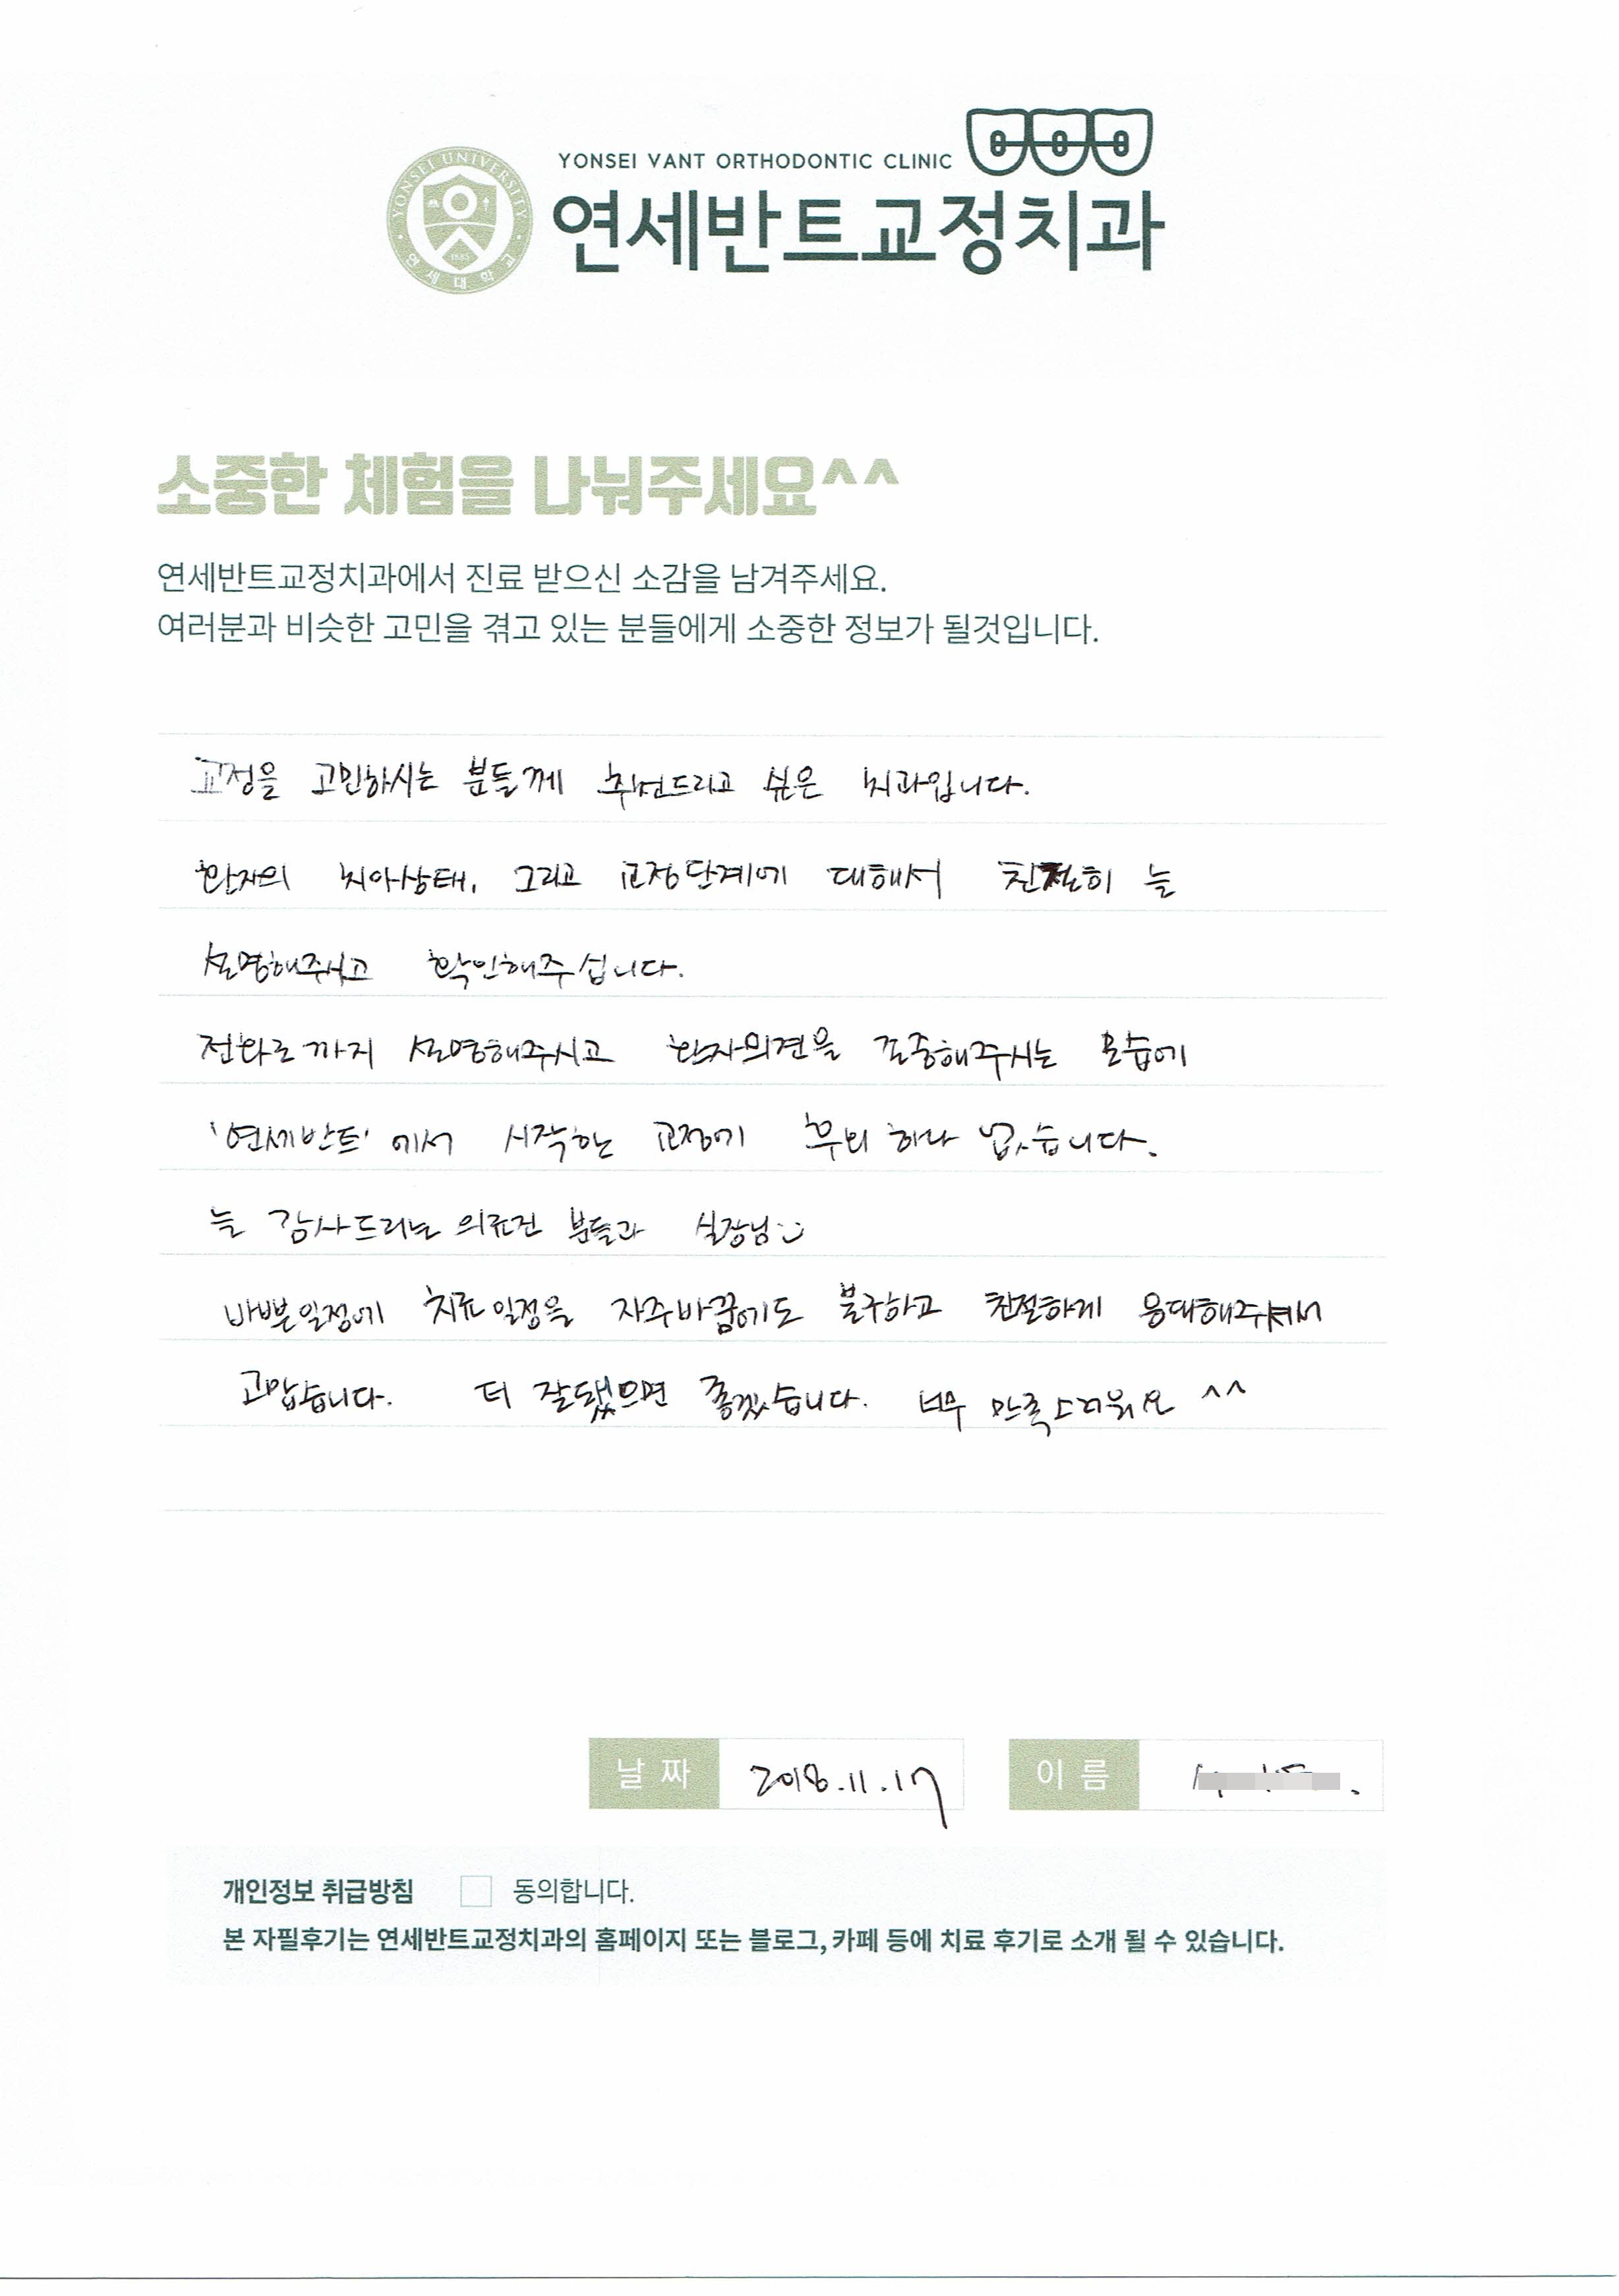 YONSEI VANT ORTHODONTIC CLINIC
YONSEI UNIVERSITY
1885
연세대학교
연세반트교정치과
소중한 체험을 나눠주세요^^
연세반트교정치과에서 진료 받으신 소감을 남겨주세요.
여러분과 비슷한 고민을 겪고 있는 분들에게 소중한 정보가 될것입니다.
교정을 고민하시는 분들께 추천드리고 싶은 치과입니다.
환자의 치아상태, 그리고 교정단계에 대해서 친절히 늘
설명해주시고 확인해주십니다.
전화로까지 설명해주시고 환자의견을 존중해주시는 모습에
'연세반트'에서 시작하는 교정에 후회 하나 없습니다.
늘 감사드리는 의료진 분들과 실장님
바쁜일정에 치료일정을 자주바꿈에도 불구하고 친절하게 응대해주셔서
고맙습니다. 더 잘됐으면 좋겠습니다. 너무 만족스러워요 ^^
날짜 2018.11.17 이름
개인정보 취급방침 동의합니다.
본 자필후기는 연세반트교정치과의 홈페이지 또는 블로그, 카페 등에 치료 후기로 소개 될 수 있습니다.